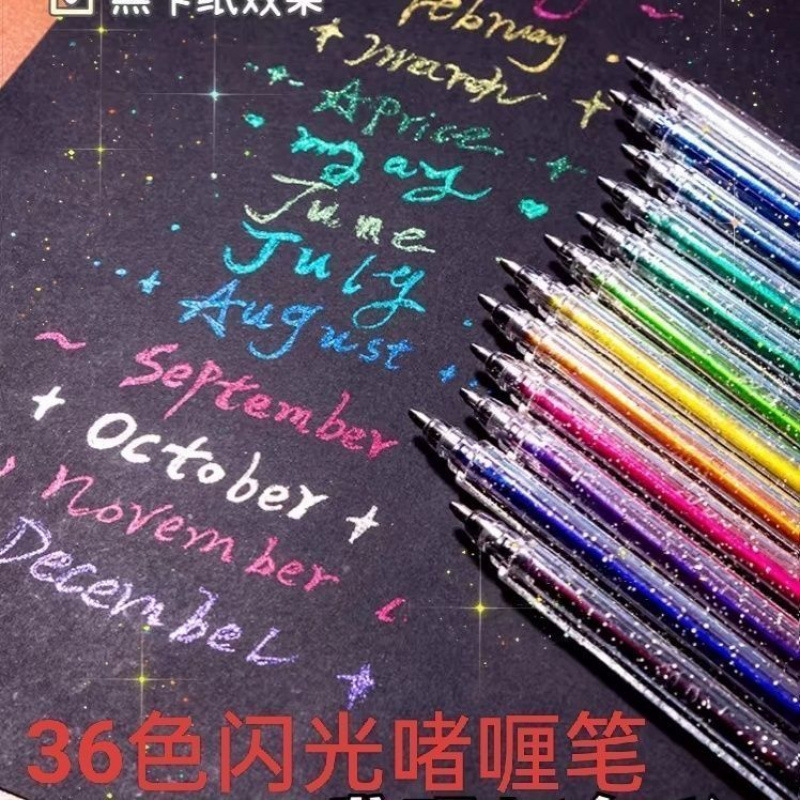 黑卡纸效果
February
March
Aprice
may
June
July
August
September
October
november
December
36色闪光啫喱笔